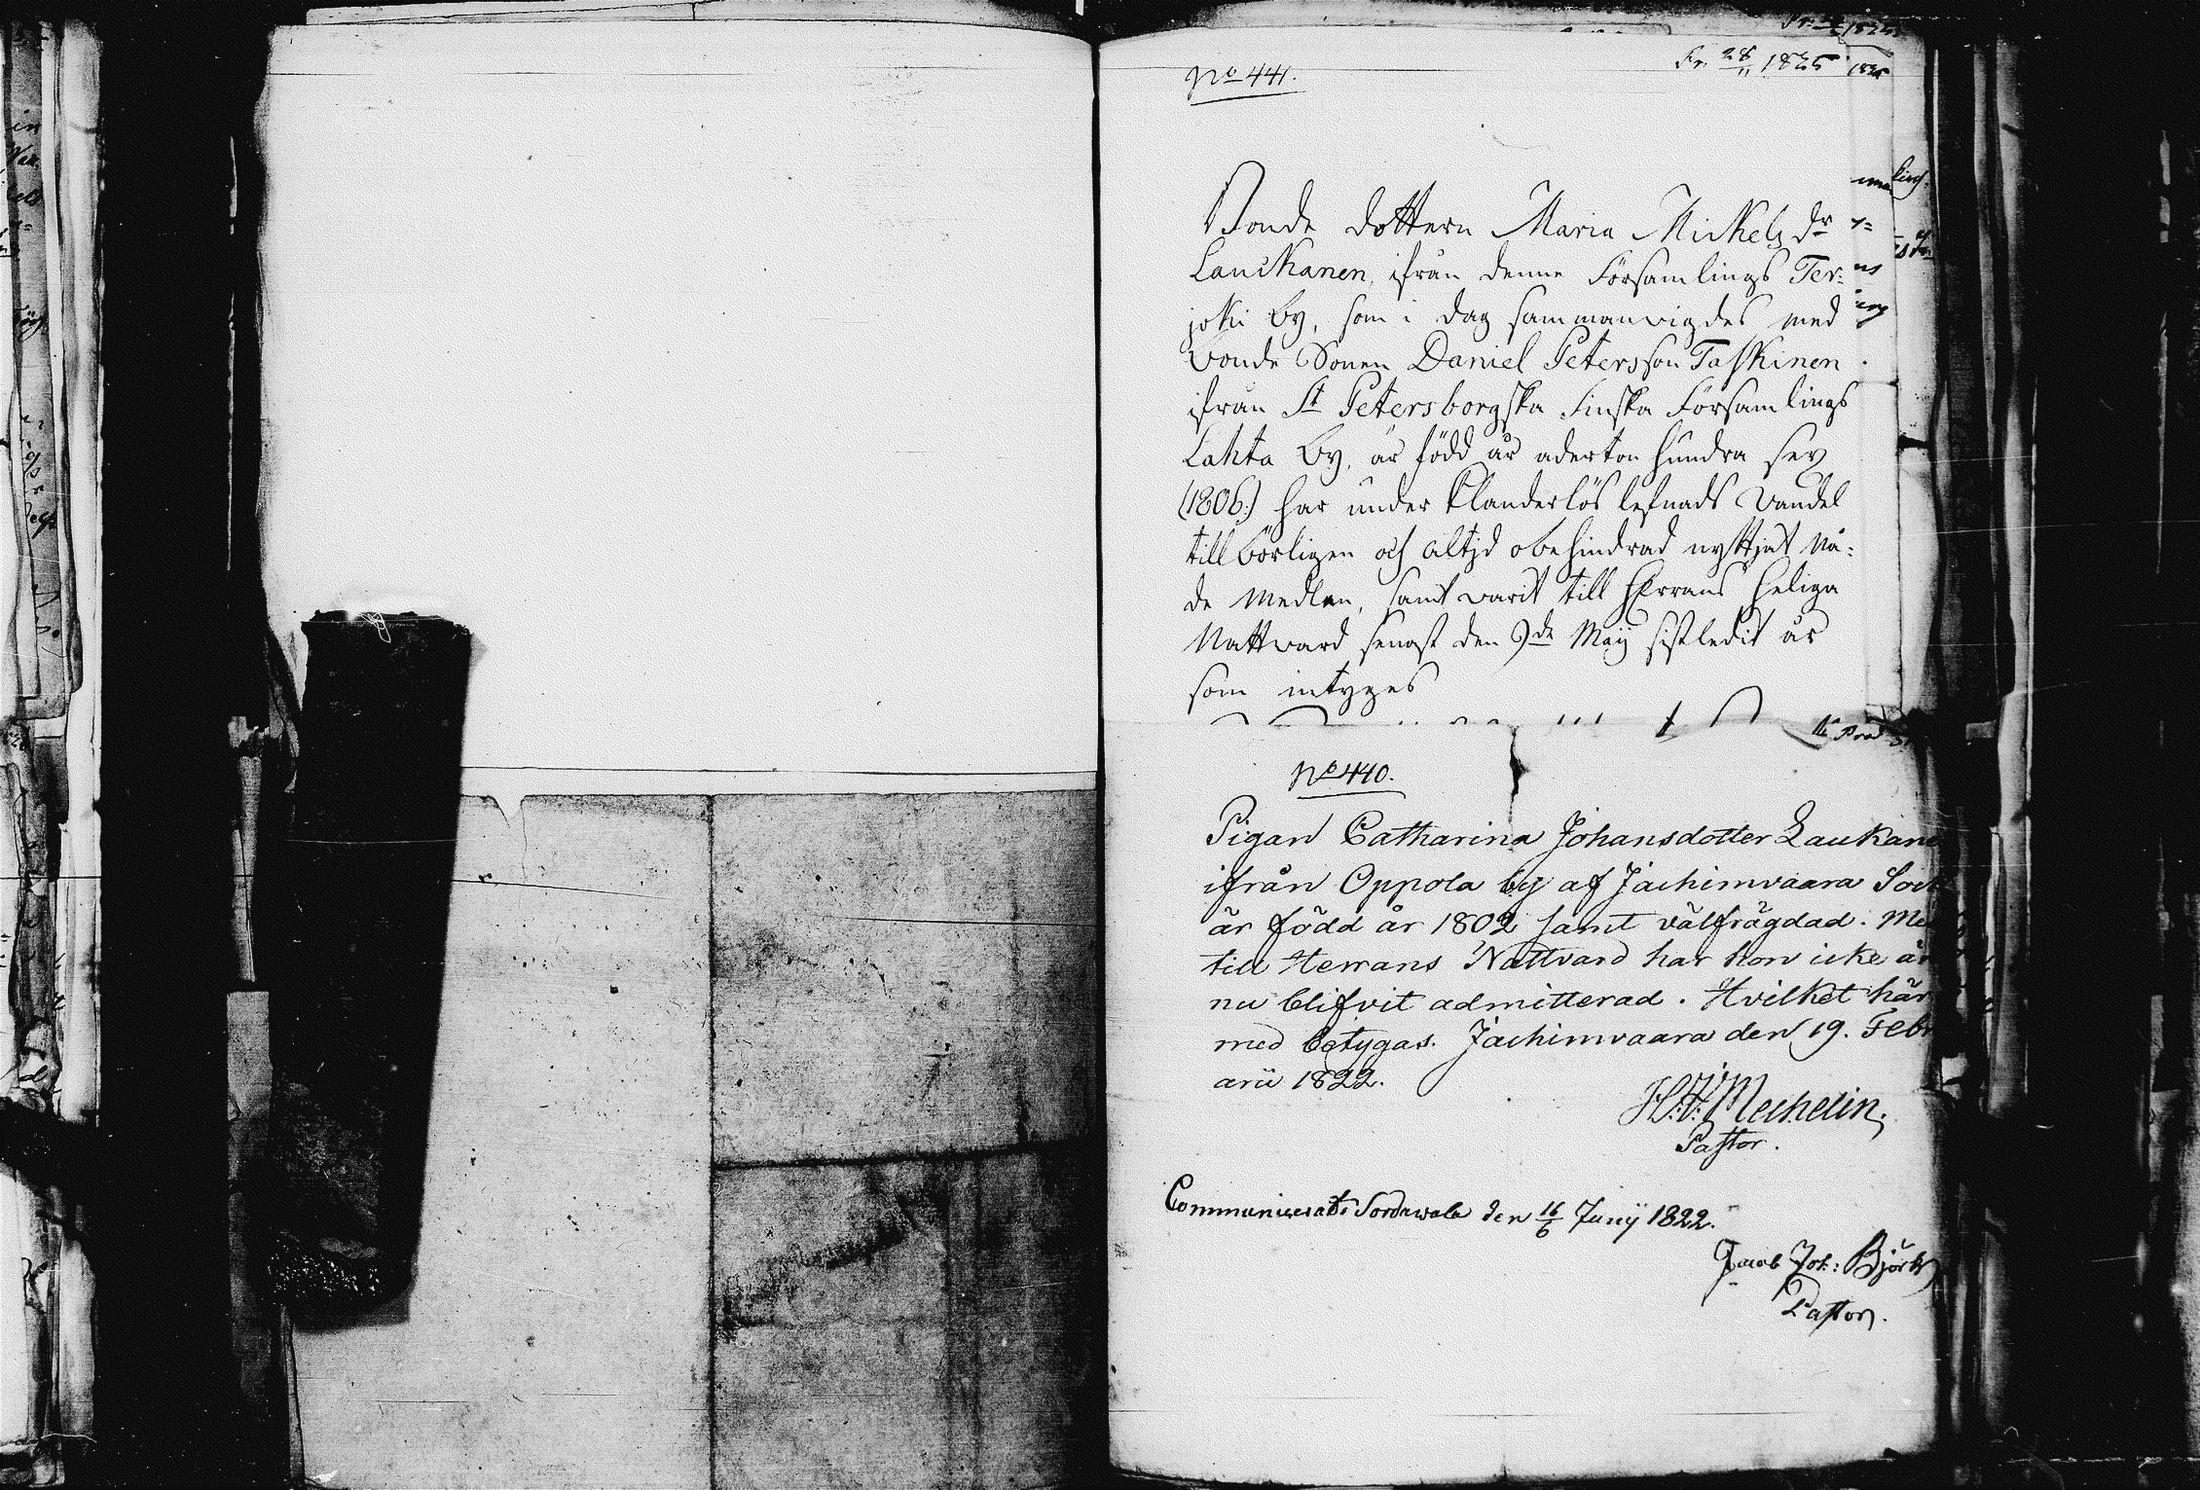 No 441.
Pr. 28/11 1825
Bonde dottern Maria Mickels dr
Lauckanen, ifrån denne Församlings Ter=
joki By, som i dag sammanvigdes med
Bonde Sonen Daniel Petersson Taskinen
ifrån St Petersborgska Finska Församlings
Lahta By, är född år aderton hundra sex
(1806) har under klanderlös lefnads vandel
tillbörligen och altid obehindrad nyttjat Nå=
de Medlen, samt varit till HErrans Heliga
Nattvard senast den 9de Maij sistledit år
som intyges
No 440.
Pigan Catharina Johansdotter Laukane
ifrån Oppola by af Jachimvaara Sock
är född år 1802 samt välfrägdad. Me
till Herrans Nattvard har hon icke än
nu blifvit admitterad. Hvilket här
med betygas. Jachimvaara den 19. Febr
arii 1822.
H.F. Mechelin.
Pastor.
Communicerat: Sordawala den 16/6 Junij 1822.
Jacob Joh: Björk
Pastor.